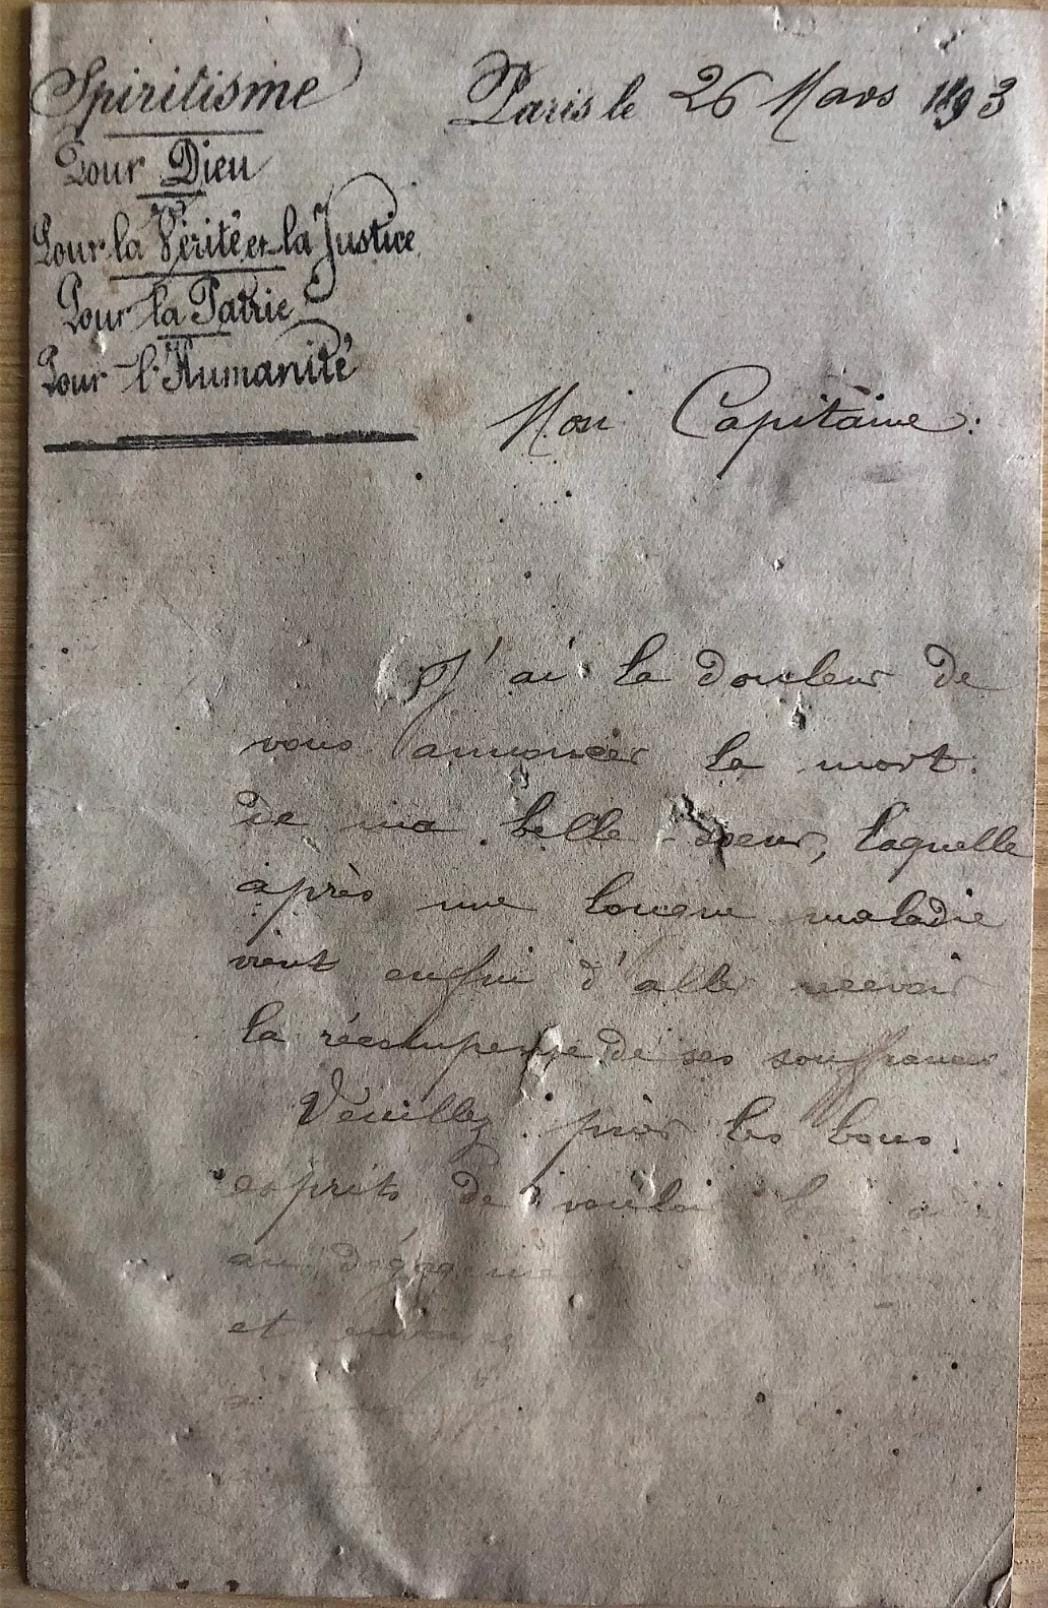 Spiritisme
Pour Dieu
Pour la Vérité et la Justice
Pour la Patrie
Pour l'Humanité
Paris le 26 Mars 1893
Mon Capitaine:
J'ai la douleur de
vous annoncer la mort
de ma belle-soeur, laquelle
après une longue maladie
vient enfin d'aller recevoir
la récompense de ses souffrances
Veuillez prier les bons
esprits de vouloir
au dégagement
et